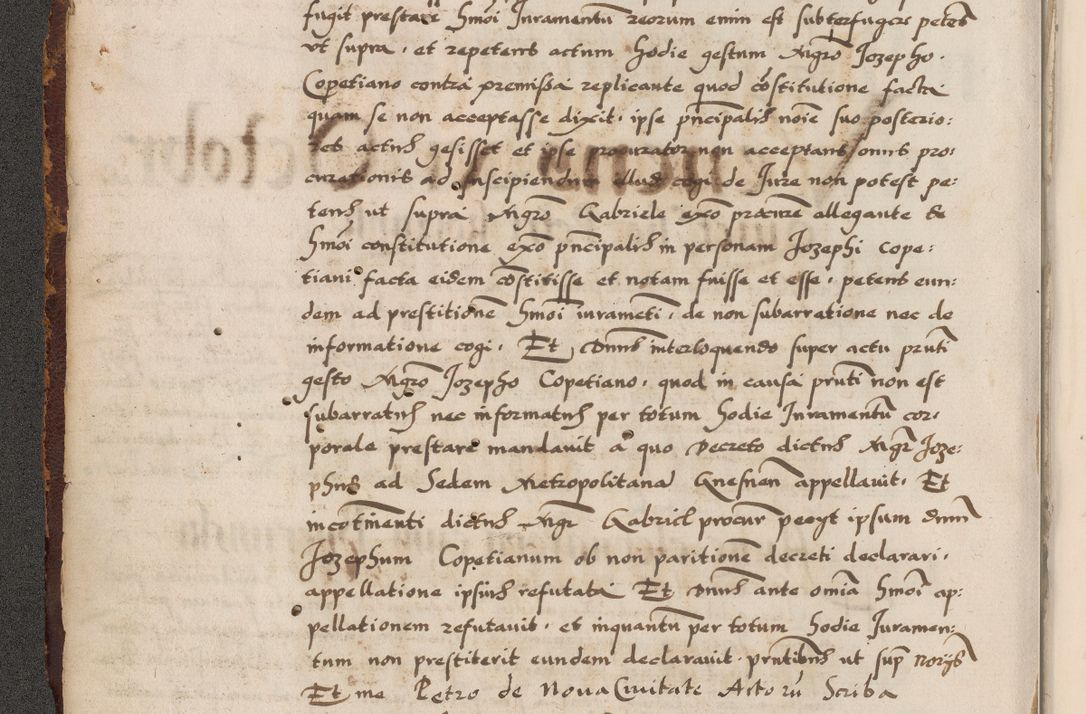 fugit prestare hmõi Iuramentũ reorum enim est subterfugere petes
vt supra, et repetens actum hodie gestum Mgrõ Iozepho.
Copetiano contra premissa replicante quod cõstitutione facta
quam se non acceptasse dixit, ipse pncipalis noĩe suo posterio:
res actus gesisset et ipse procurator non acceptans omis pro:
curationis ad suscipiendum illud cogi de Iure non potest pe:
tens ut supra Mgrõ Gabriele exõ procure allegante de
hmõi constitutione exõ pncipalis in personam Iozephi Cope:
tiani facta eidem cõstitisse et notam fuisse et esse, petens eun:
dem ad prestitionẽ hmõi iuramẽti, de non subarratione nec de
informatione cogi, Et Dnus interloquendo super actu pruti
gesto Mgrõ Iozepho Copetiano, quod in causa pruti non est
subarratus nec informatus per totum hodie Iuramentũ cor,
porale prestare mandavit a quo Decreto dictus Mgr Ioze:
phus ad Sedem Metropolitanã Gnesnen appellavit, Et
incotinenti dictus Mgr Gabriel procur peeyt ipsum dnm
Iozephum Copetianum ob non paritionẽ decreti declarari,
appellatione ipsius refutata Et Dnus ante omĩa hmõi ap:
pellationem refutavit, et inquantũ per totum hodie Iuramen:
tum non prestiterit eundem declaravit, prntibus ut sup Norijs
Et me Petro de Nova Civitate Actorũ Scriba